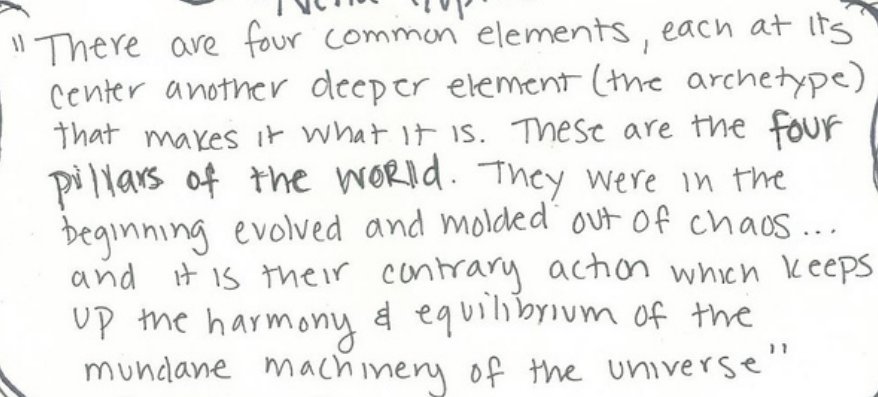 "There are four common elements, each at its
center another deeper element (the archetype)
that makes it what it is. These are the four
pillars of the world. They were in the
beginning evolved and molded out of chaos...
and it is their contrary action which keeps
up the harmony & equilibrium of the
mundane machinery of the universe"